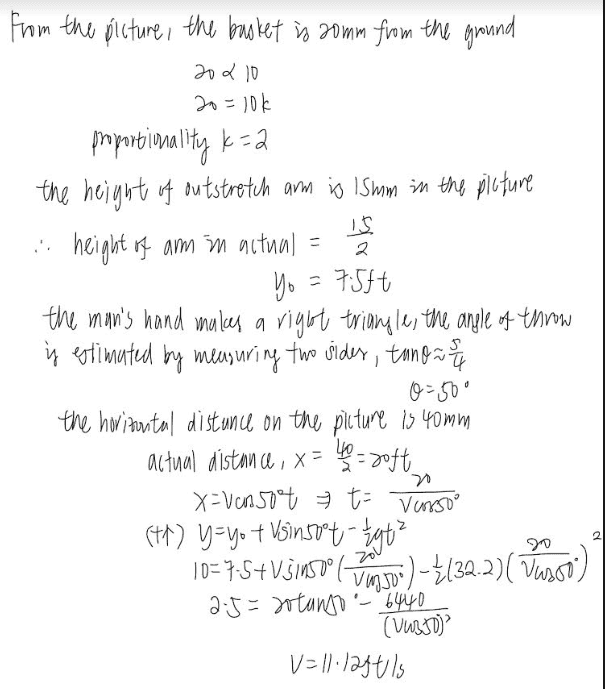 From the picture, the basket is 20mm from the ground
20 ∝ 10
20 = 10k
proportionality k = 2
the height of outstretch arm is 15mm in the picture
∴ height of arm in actual = 15/2
y₀ = 7.5ft
the man's hand makes a right triangle, the angle of throw
is estimated by measuring two sides, tanθ ≈ 5/4
θ = 50°
the horizontal distance on the picture is 40mm
actual distance, x = 40/2 = 20ft
x = Vcos50°t ⇒ t = 20/Vcos50°
(+↑) y = y₀ + Vsin50°t - ½gt²
10 = 7.5 + Vsin50°(20/Vcos50°) - ½(32.2)(20/Vcos50°)²
2.5 = 20tan50° - 6440/(Vcos50)²
V = 11.12ft/s